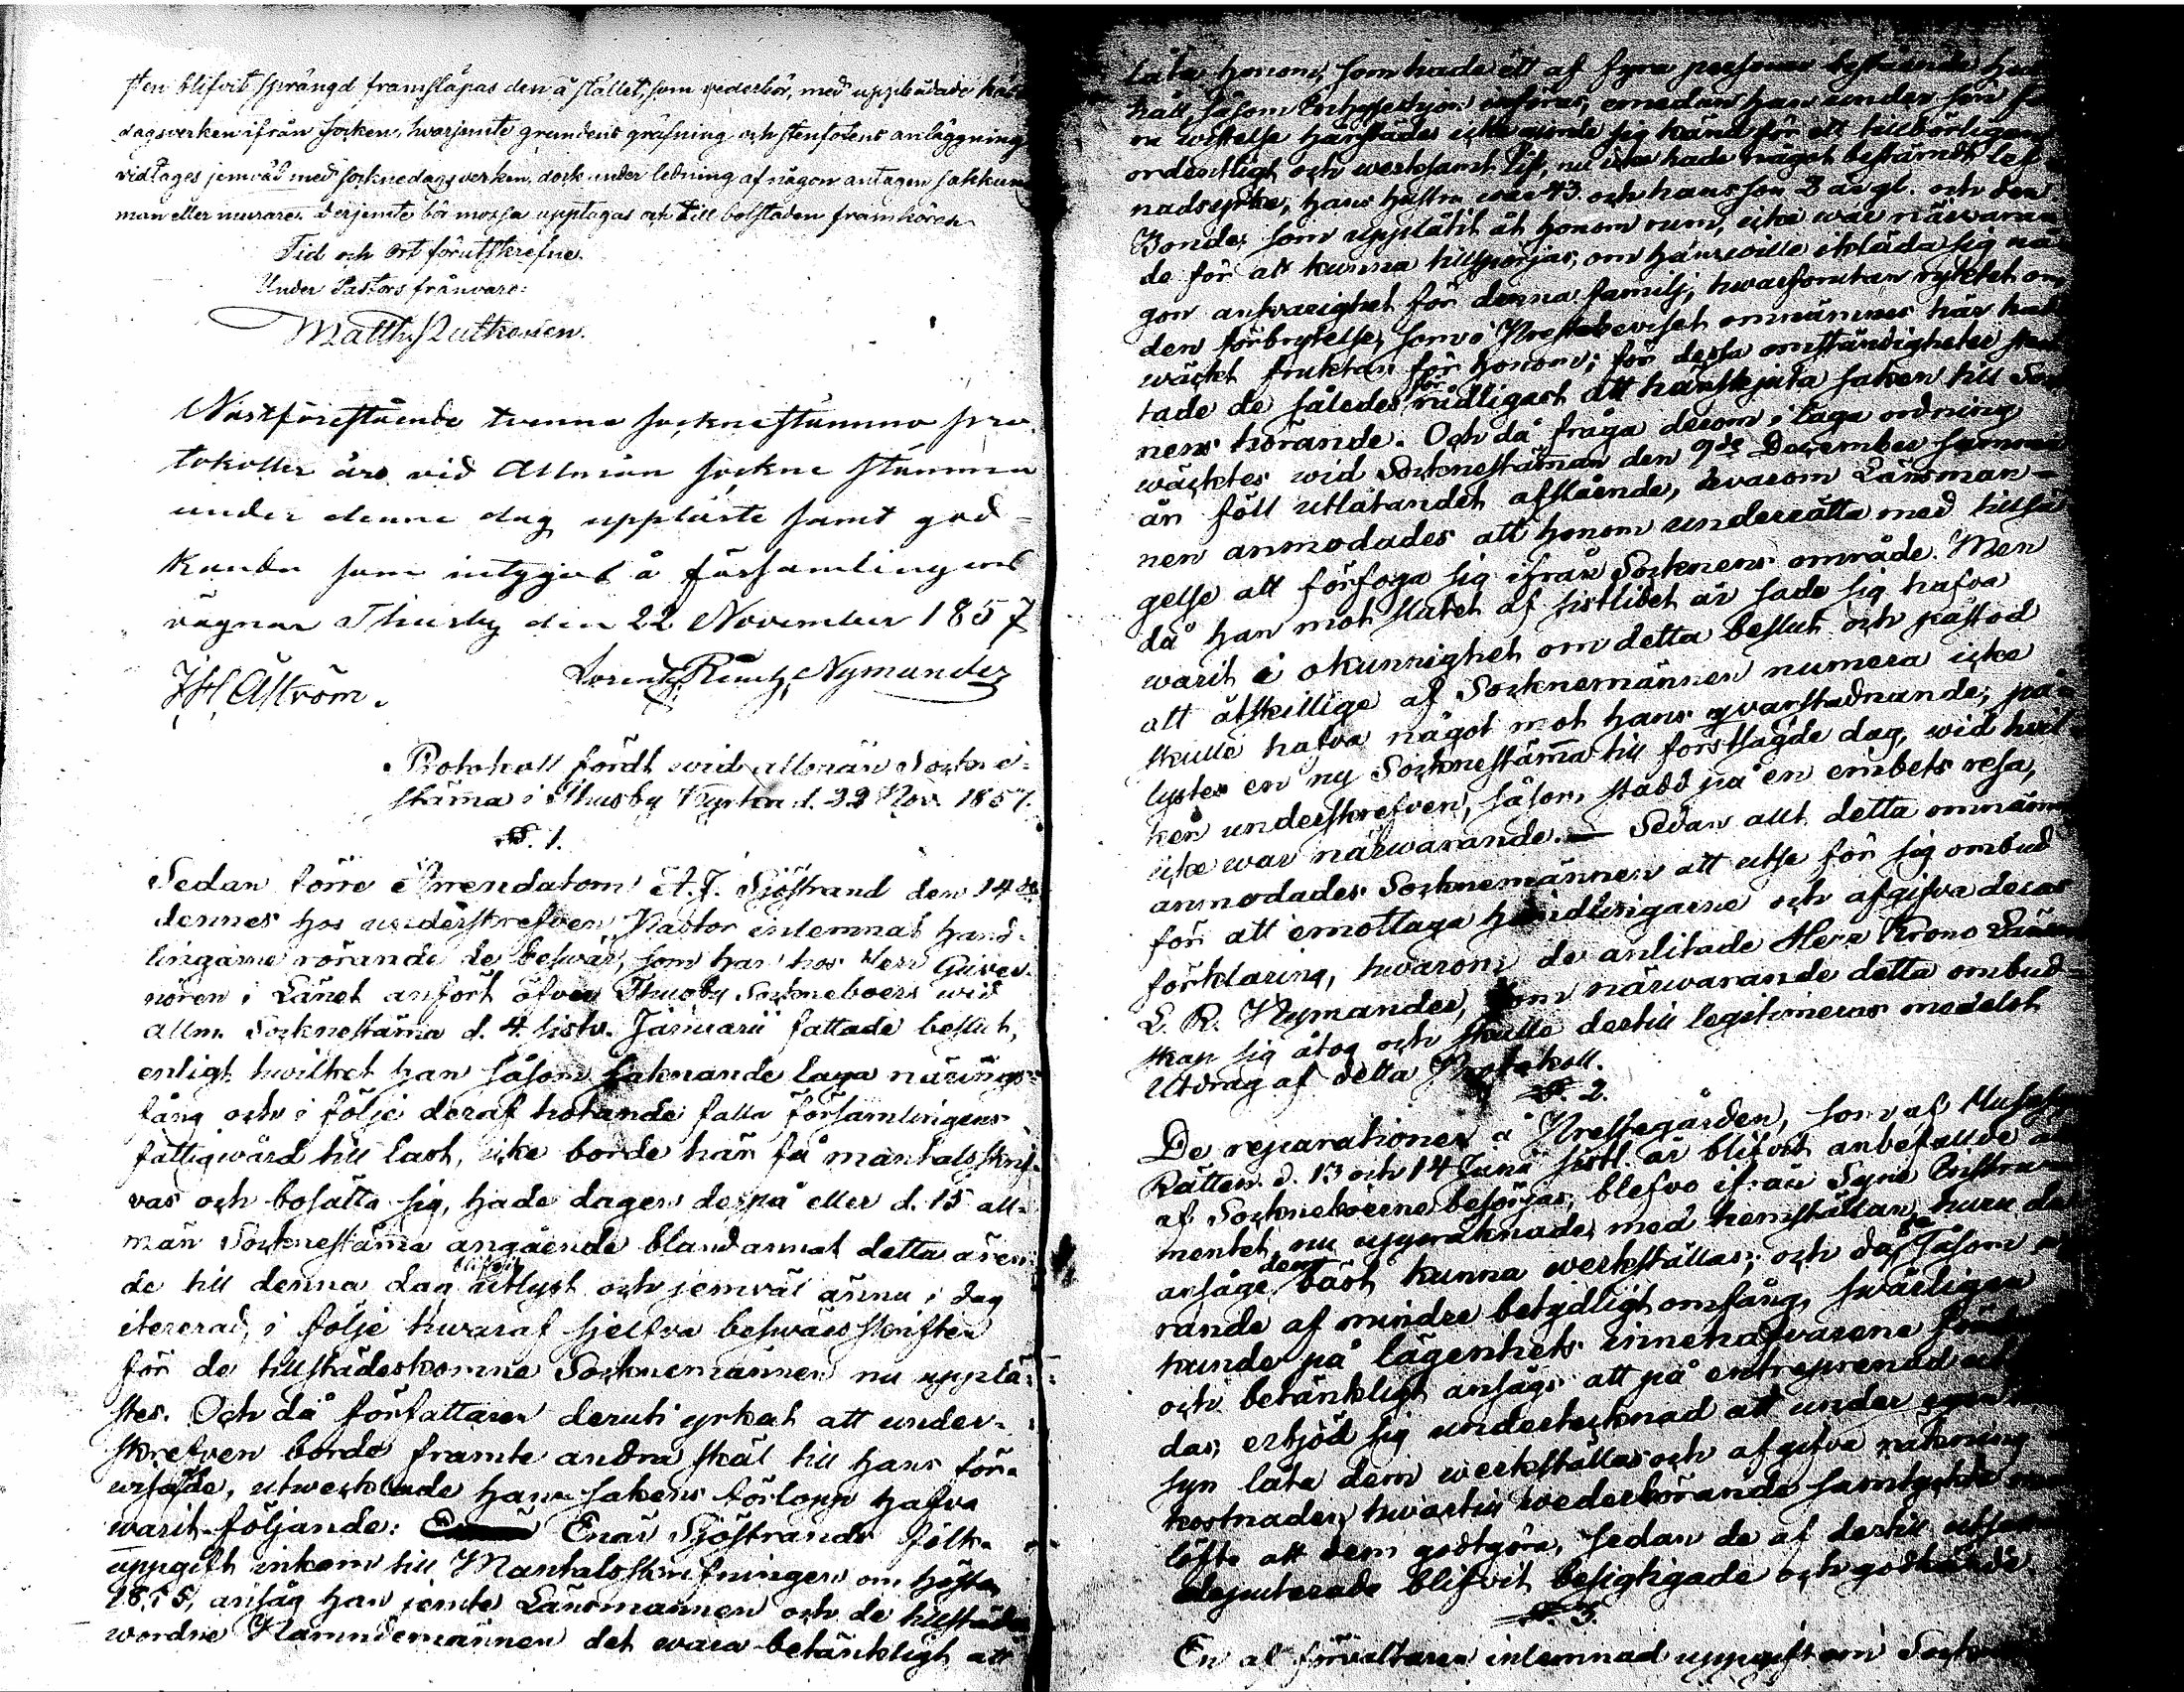 sten blifvit sprängd framsläpas den å stället, som vederbör, med uppbådade
dagsverken ifrån socken, hvarjemte grundens gräfning och stenfotens anläggning
vidtages jemväl med socknedagsverken, dock under ledning af någon antagen sakkun
man eller murare. Derjemte bör mossa upptagas och till bolstaden framköras
Tid och ort förutskrefne.
Under Pastors frånvaro:
Matth.
Nästföreståendе tvenne sockne stämmo pro-
tokoller äro vid Allmän sockne stämma
under denne dag uppläste samt god-
kända som intygas å församlingens
vägnar Thusby den 22 November 1857
J H Åström. Nymander
Protokoll fördt wid allmän Sockne-
stäma i Thusby Kyrka d. 22 Nov. 1857.
§. 1.
Sedan förre Arrendatorn A. J. Sjöstrand den 14de
dennes hos underskrefven Pastor inlemnat hand-
lingarne rörande de beswär, som han hos Herr Guver-
nören i Länet anfört öfver Thusby Socknéboers wid
allm. Socknestäma d. 4 sistv. Januarii fattade beslut,
enligt hwilket han såsom saknande laga närings-
fång och i följe deraf hotande falla församlingens
fattigwård till last, icke borde här få mantalsskrif-
vas och bosätta sig, hade dagen derpå eller d. 15 all-
män Socknestäma angående bland annat detta ären-
de till denna dag blifvit utlyst och jemväl ännu i dag
itererad, i följe hwaraf sjelfva beswärsskriften
för de tillstädeskomne Socknemännen nu upplä-
stes. Och då författaren deruti yrkat att under-
skrefven borde framte andra skäl till hans för-
wisande, utwecklade han sakens förlopp hafva
warit följande: Enär Sjöstrands folk-
uppgift inkom till Mantalsskrifningen om hösten
1855, ansåg han jemte Länsmannen och de tillstädes
wordne Nämndemännen det wara betänkligt att
låta honom, som hade ett af fyra personer bestående
håll, såsom Inhysesshjon införas, emedan han under sin
re wistelse härstädes icke gjorde sig känd för ett tillbörligen
ordentligt och werksamt lif, nu icke hade något bestämdt lef-
nadsyrke, hans hustru war 43. och hans son 3 år gl. och den
Bonde, som upplåtit åt honom rum, icke war närwaran
de för att kunna tillspörjas, om han wille ikläda sig nå
gon ansvarighet för denna familj, hwarförutan ryktet om
den förbrytelse, som i Prestbeviset omnämnes här had
wäckt fruktan för honom; för dessa omständigheter
tade de således för rådligast att hänskjuta saken till Soc
nens hörande. Och då fråga derom i laga ordning
wäcktes wid Socknestäman den 9de December samma
år föll utlåtandet afslående, hvarom Länsman-
nen anmodades att honom underrätta med tillsä
gelse att förfoga sig ifrån Socknens område. Men
då han mot slutet af sistlidet år sade sig hafva
warit i okunnighet om detta beslut och påstod
att åtskillige af Socknemännen numera icke
skulle hafva något mot hans qvarstadnande, på-
lystes en ny Socknestäma till förstsagde dag, wid hvil
ken underskrefven, såsom stadd på en embets resa,
icke war närwarande. — Sedan allt detta omnämn
anmodades Socknemännen att utse för sig ombud
för att emottaga handlingarne och afgifva deras
förklaring, hwarom de anlitade Herr Krono Läns
L. R. Nymander, som närwarande detta ombud-
skap sig åtog och skulle dertill legitimeras medelst
Utdrag af detta Protokoll.
§. 2.
De reparationer å Prestegården, som af
Rätten d. 13 och 14 Junii sistl. år blifvit anbefallde att
af Sockneboerne besörjas, blefvo ifrån Syne Instru
mentet nu uppräknade, med hemställan, huru de
ansåge dem bäst kunna werkställas; och då de såsom
rande af mindre betydligt omfång, swårligen
kunde på lägenhets innehafvarene
och betänkligt ansågs att på entreprenad
das, erbjöd sig undertecknad att under egen
syn låta dem werkställas och afgifva räkning
kostnaden, hwartill wederbörande samtyckte
löfte att dem godtgöra, sedan de af dertill utse
deputerade blifvit besigtigade och godkände.
§. 3.
En af förvaltaren inlemnad uppgift om